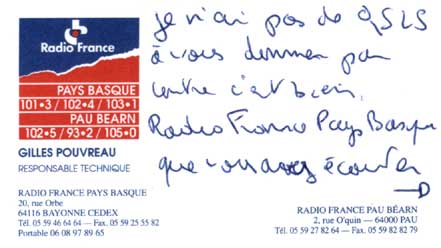 Radio France
PAYS BASQUE
101•3 / 102•4 / 103•1
PAU BEARN
102•5 / 93•2 / 105•0
GILLES POUVREAU
RESPONSABLE TECHNIQUE
RADIO FRANCE PAYS BASQUE
20, rue Orbe
64116 BAYONNE CEDEX
Tél. 05 59 46 64 64 — Fax. 05 59 25 55 82
Portable 06 08 97 89 65
je n'ai pas de QSLS
à vous donner par
contre c'est bien
Radio France Pays Basque
que vous avez écouter
RADIO FRANCE PAU BÉARN
2, rue O'quin — 64000 PAU
Tél. 05 59 27 82 64 — Fax. 05 59 82 82 79